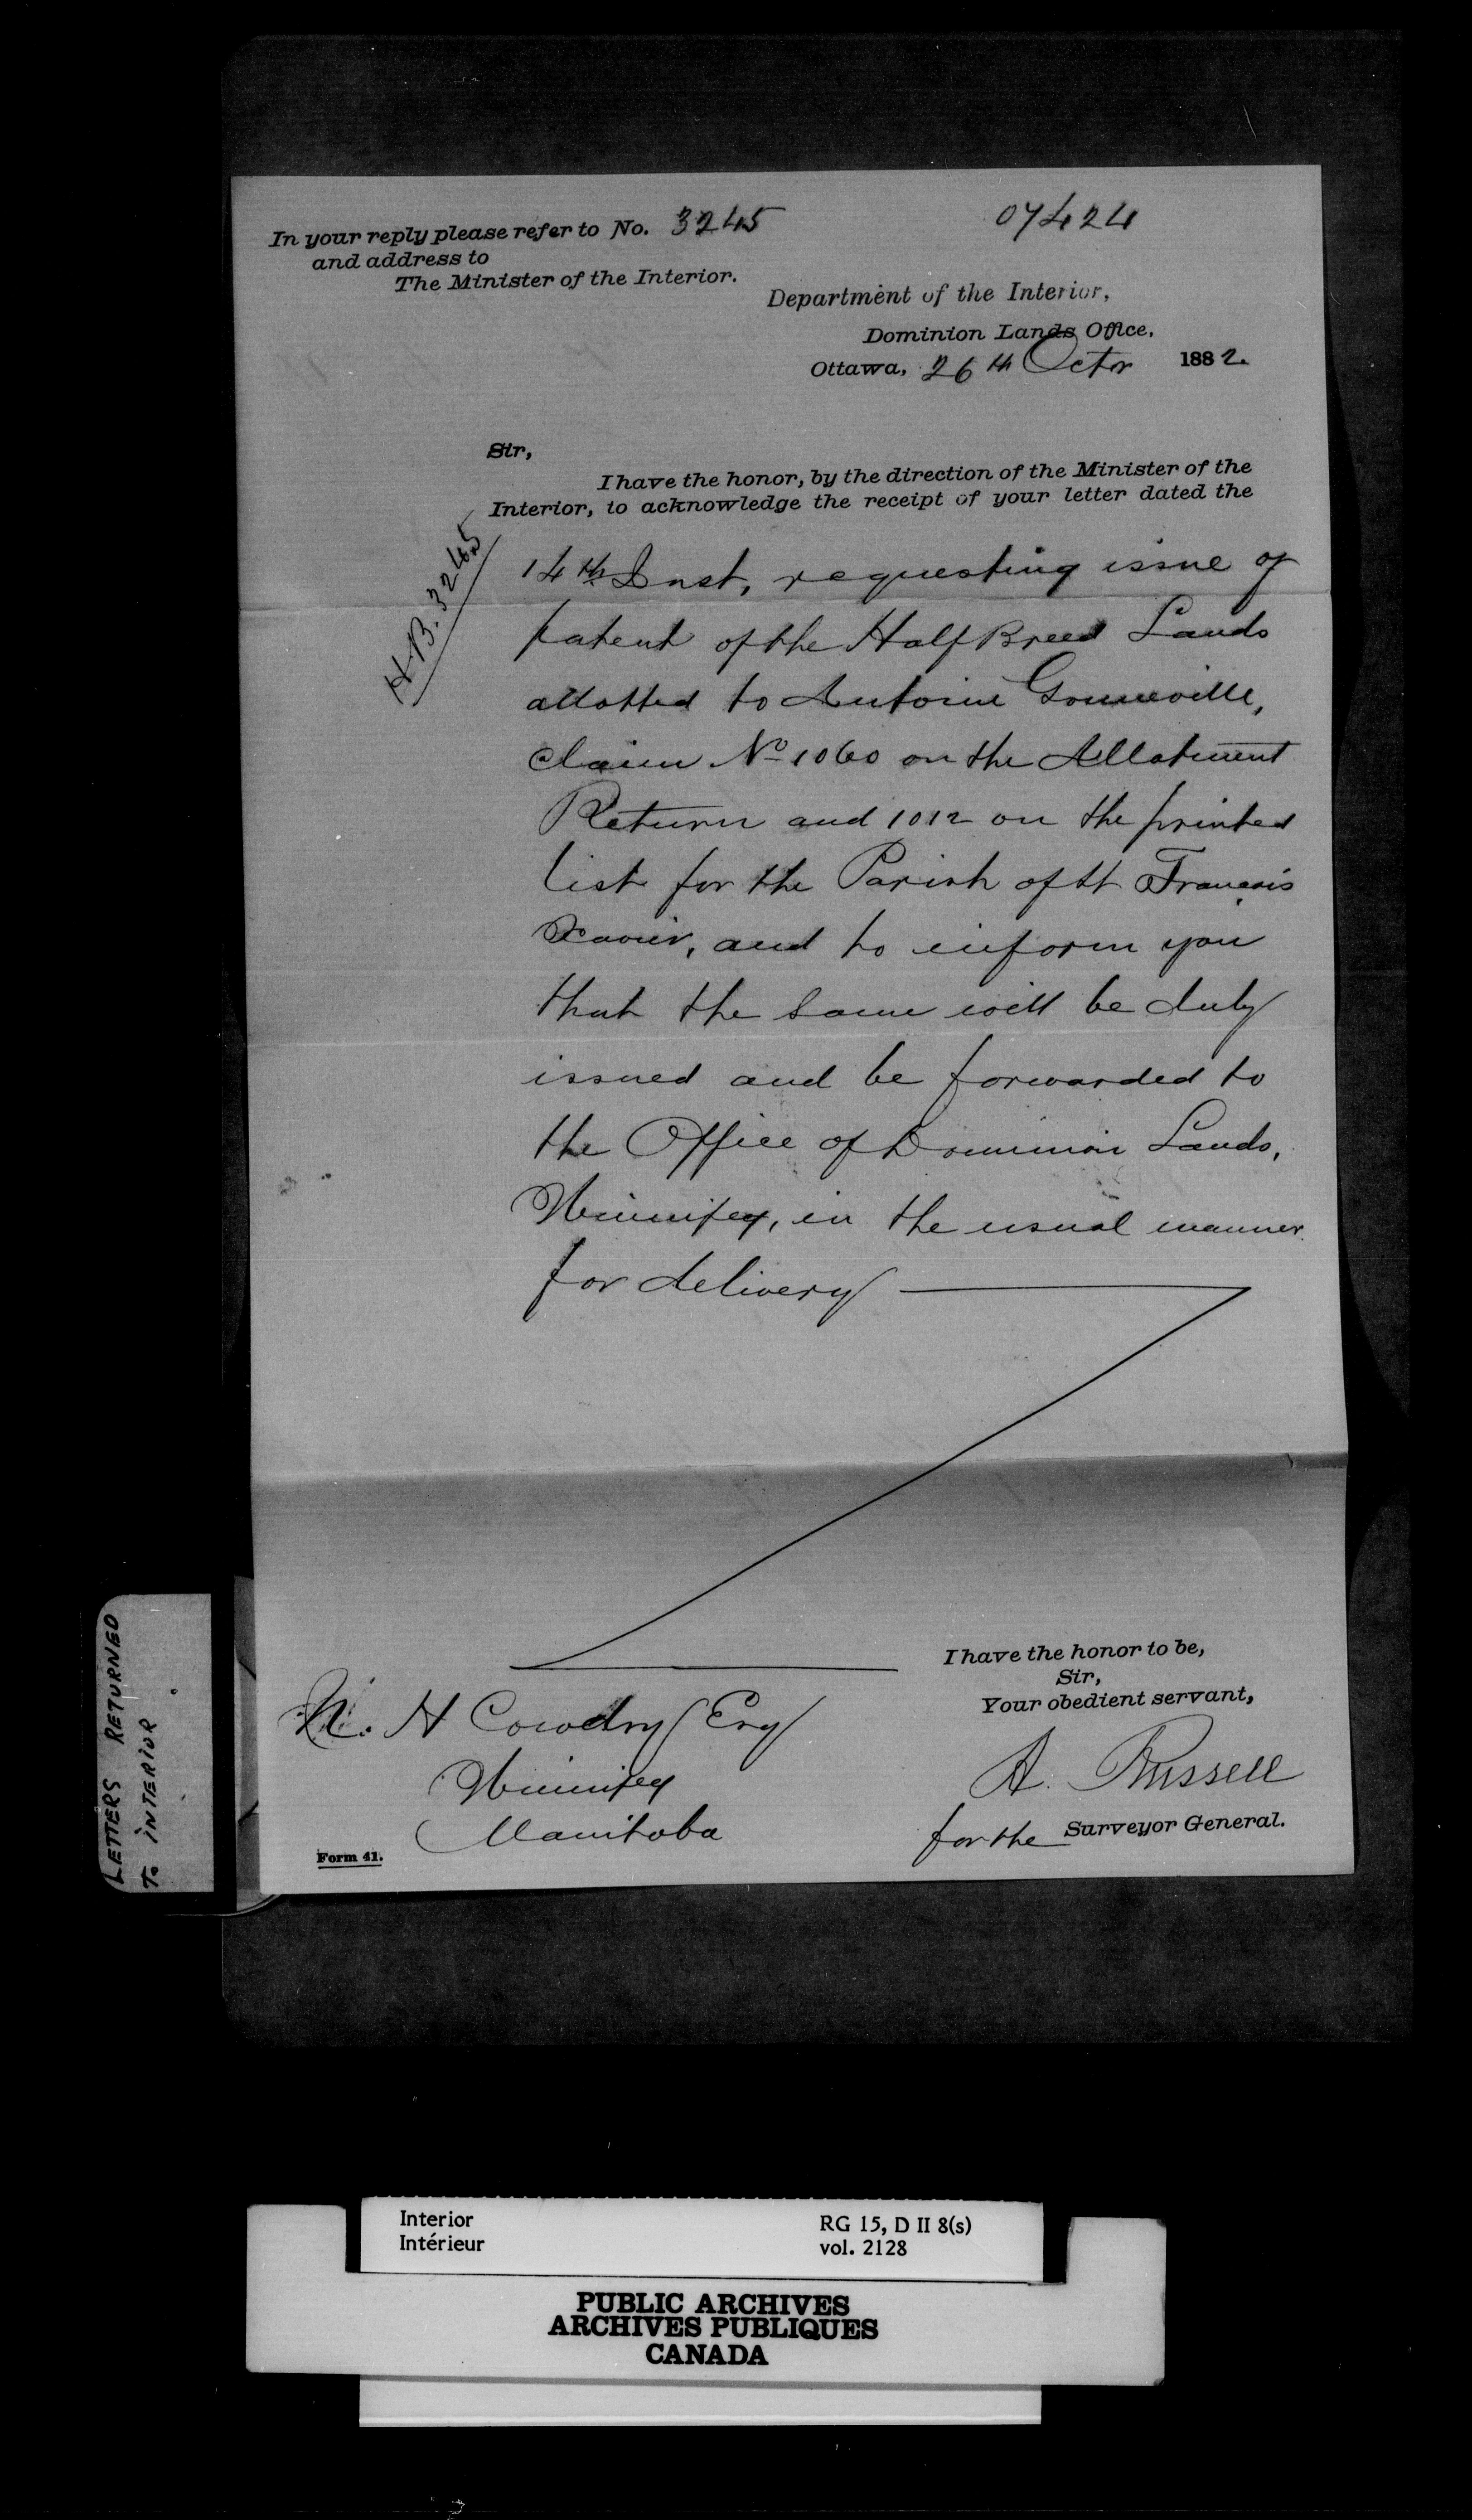 In your reply please refer to No. 3245
and address to
The Minister of the Interior.
07424
Department of the Interior,
Dominion Lands Office,
Ottawa, 26th Octor 1882.
Sir,
I have the honor, by the direction of the Minister of the
Interior, to acknowledge the receipt of your letter dated the
H.B. 3245
14th Inst, requesting issue of
patent of the Half Breed Lands
allotted to Antoine Gonneville,
claim No 1060 on the Allotment
Return and 1012 on the printed
list for the Parish of St François
Xavier, and to inform you
that the same will be duly
issued and be forwarded to
the Office of Dominion Lands,
Winnipeg, in the usual manner
for delivery
I have the honor to be,
Sir,
Your obedient servant,
A. Russell
for the Surveyor General.
N. H Cowdry Esq
Winnipeg
Manitoba
Form 41.
LETTERS RETURNED
To INTERIOR
Interior
Intérieur
RG 15, D II 8(s)
vol. 2128
PUBLIC ARCHIVES
ARCHIVES PUBLIQUES
CANADA